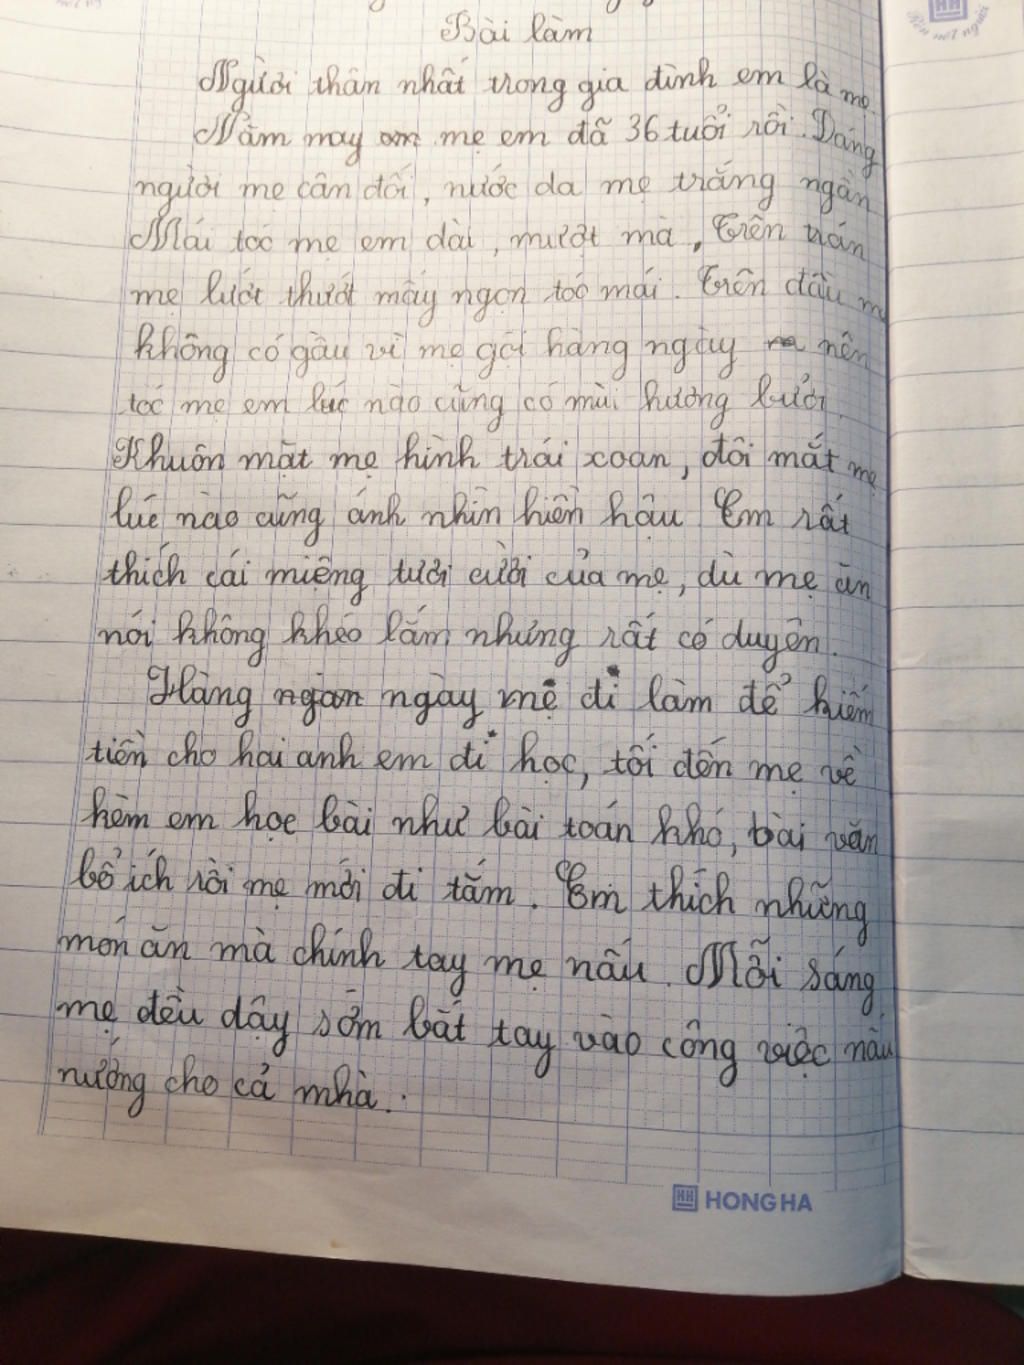 Bài làm
Người thân nhất trong gia đình em là mẹ.
Năm may em mẹ em đã 36 tuổi rồi. Dáng
người mẹ cân đối, nước da mẹ trắng ngần
Mái tóc mẹ em dài, mượt mà, Trên trán
mẹ lướt thướt mấy ngọn tóc mái. Trên đầu mẹ
không có gầu vì mẹ gội hàng ngày nên
tóc mẹ em lúc nào cũng có mùi hương bưởi.
Khuôn mặt mẹ hình trái xoan, đôi mắt mẹ
lúc nào cũng ánh nhìn hiền hậu Em rất
thích cái miệng tươi cười của mẹ, dù mẹ ăn
nói không khéo lắm nhưng rất có duyên.
Hàng ngàn ngày mẹ đi làm để kiếm
tiền cho hai anh em đi học, tối đến mẹ về
kèm em học bài như bài toán khó, bài văn
bổ ích rồi mẹ mới đi tắm. Em thích những
món ăn mà chính tay mẹ nấu. Mỗi sáng
mẹ đều dậy sớm bắt tay vào công việc nấu
nướng cho cả nhà.
HH HONG HA